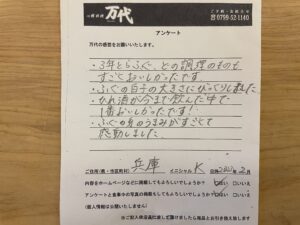 万代
ご予約・お問合せ
☎0799 52 1140
アンケート
万代の感想をお願いいたします。
・3年とらふぐ、どの調理のものも
すごくおいしかったです
・ふぐの白子の大きさにびっくりしました
・ひれ酒が今まで飲んだ中で
1番おいしかったです!
・ふぐの身のうまみがすごくて
感動しました
ご住所(県・市区町村) 兵庫 イニシャル K 2月
内容をホームページなどに掲載してもよろしいでしょうか? はい □いいえ
アンケートと食事中の写真の掲載もしてもよろしいでしょうか? はい □いいえ
(個人情報は公開いたしません)